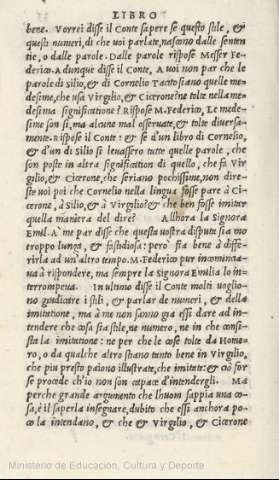 LIBRO
bene. Vorrei disse il Conte sapere se questo stile, &
questi numeri, di che voi parlate, nascono dalle senten
tie, o dalle parole. Dalle parole rispose Messer Fe-
derico. A dunque disse il Conte, A voi non par che le
parole di Silio, & di Cornelio Tacito siano quelle me-
desime, che usa Virgilio, & Cicerone? ne tolte nella me-
desima significatione? Rispose M. Federico, Le mede-
sime son si, ma alcune mal osservate, & tolte diversa-
mente. rispose il Conte: & se d'un libro di Cornelio,
& d'un di Silio si levassero tutte quelle parole, che
son poste in altra signification di quello, che fa Vir
gilio, & Cicerone, che seriano pochissime, non dire-
ste voi poi che Cornelio nella lingua fosse pare à Ci-
cerone, à Silio, & à Virgilio? & che ben fosse imitar
quella maniera del dire? Allhora la Signora
Emil. A' me par disse che questa vostra disputa sia mo
troppo lunga, & fastidiosa: però fia bene à diffe-
rirla ad un'altro tempo. M. Federico pur incomincia
va à rispondere, ma sempre la Signora Emilia lo in-
terrompeva. In ultimo disse il Conte molti voglio-
no giudicare i stili, & parlar de numeri, & della
imitatione, ma à me non sanno già essi dare ad in-
tendere che cosa sia stile, ne numero, ne in che consi-
sta la imitatione: ne per che le cose tolte da Home-
ro, o da qualche altro stiano tanto bene in Virgilio,
che piu presto paiono illustrate, che imitate: & ciò for
se procede ch'io non son capace d'intendergli. Ma
perche grande argumento che l'huom sappia una co-
sa, è il saperla insegnare, dubito che essi anchora po-
co la intendano, & che & Virgilio, & Cicerone
Ministerio de Educación, Cultura y Deporte